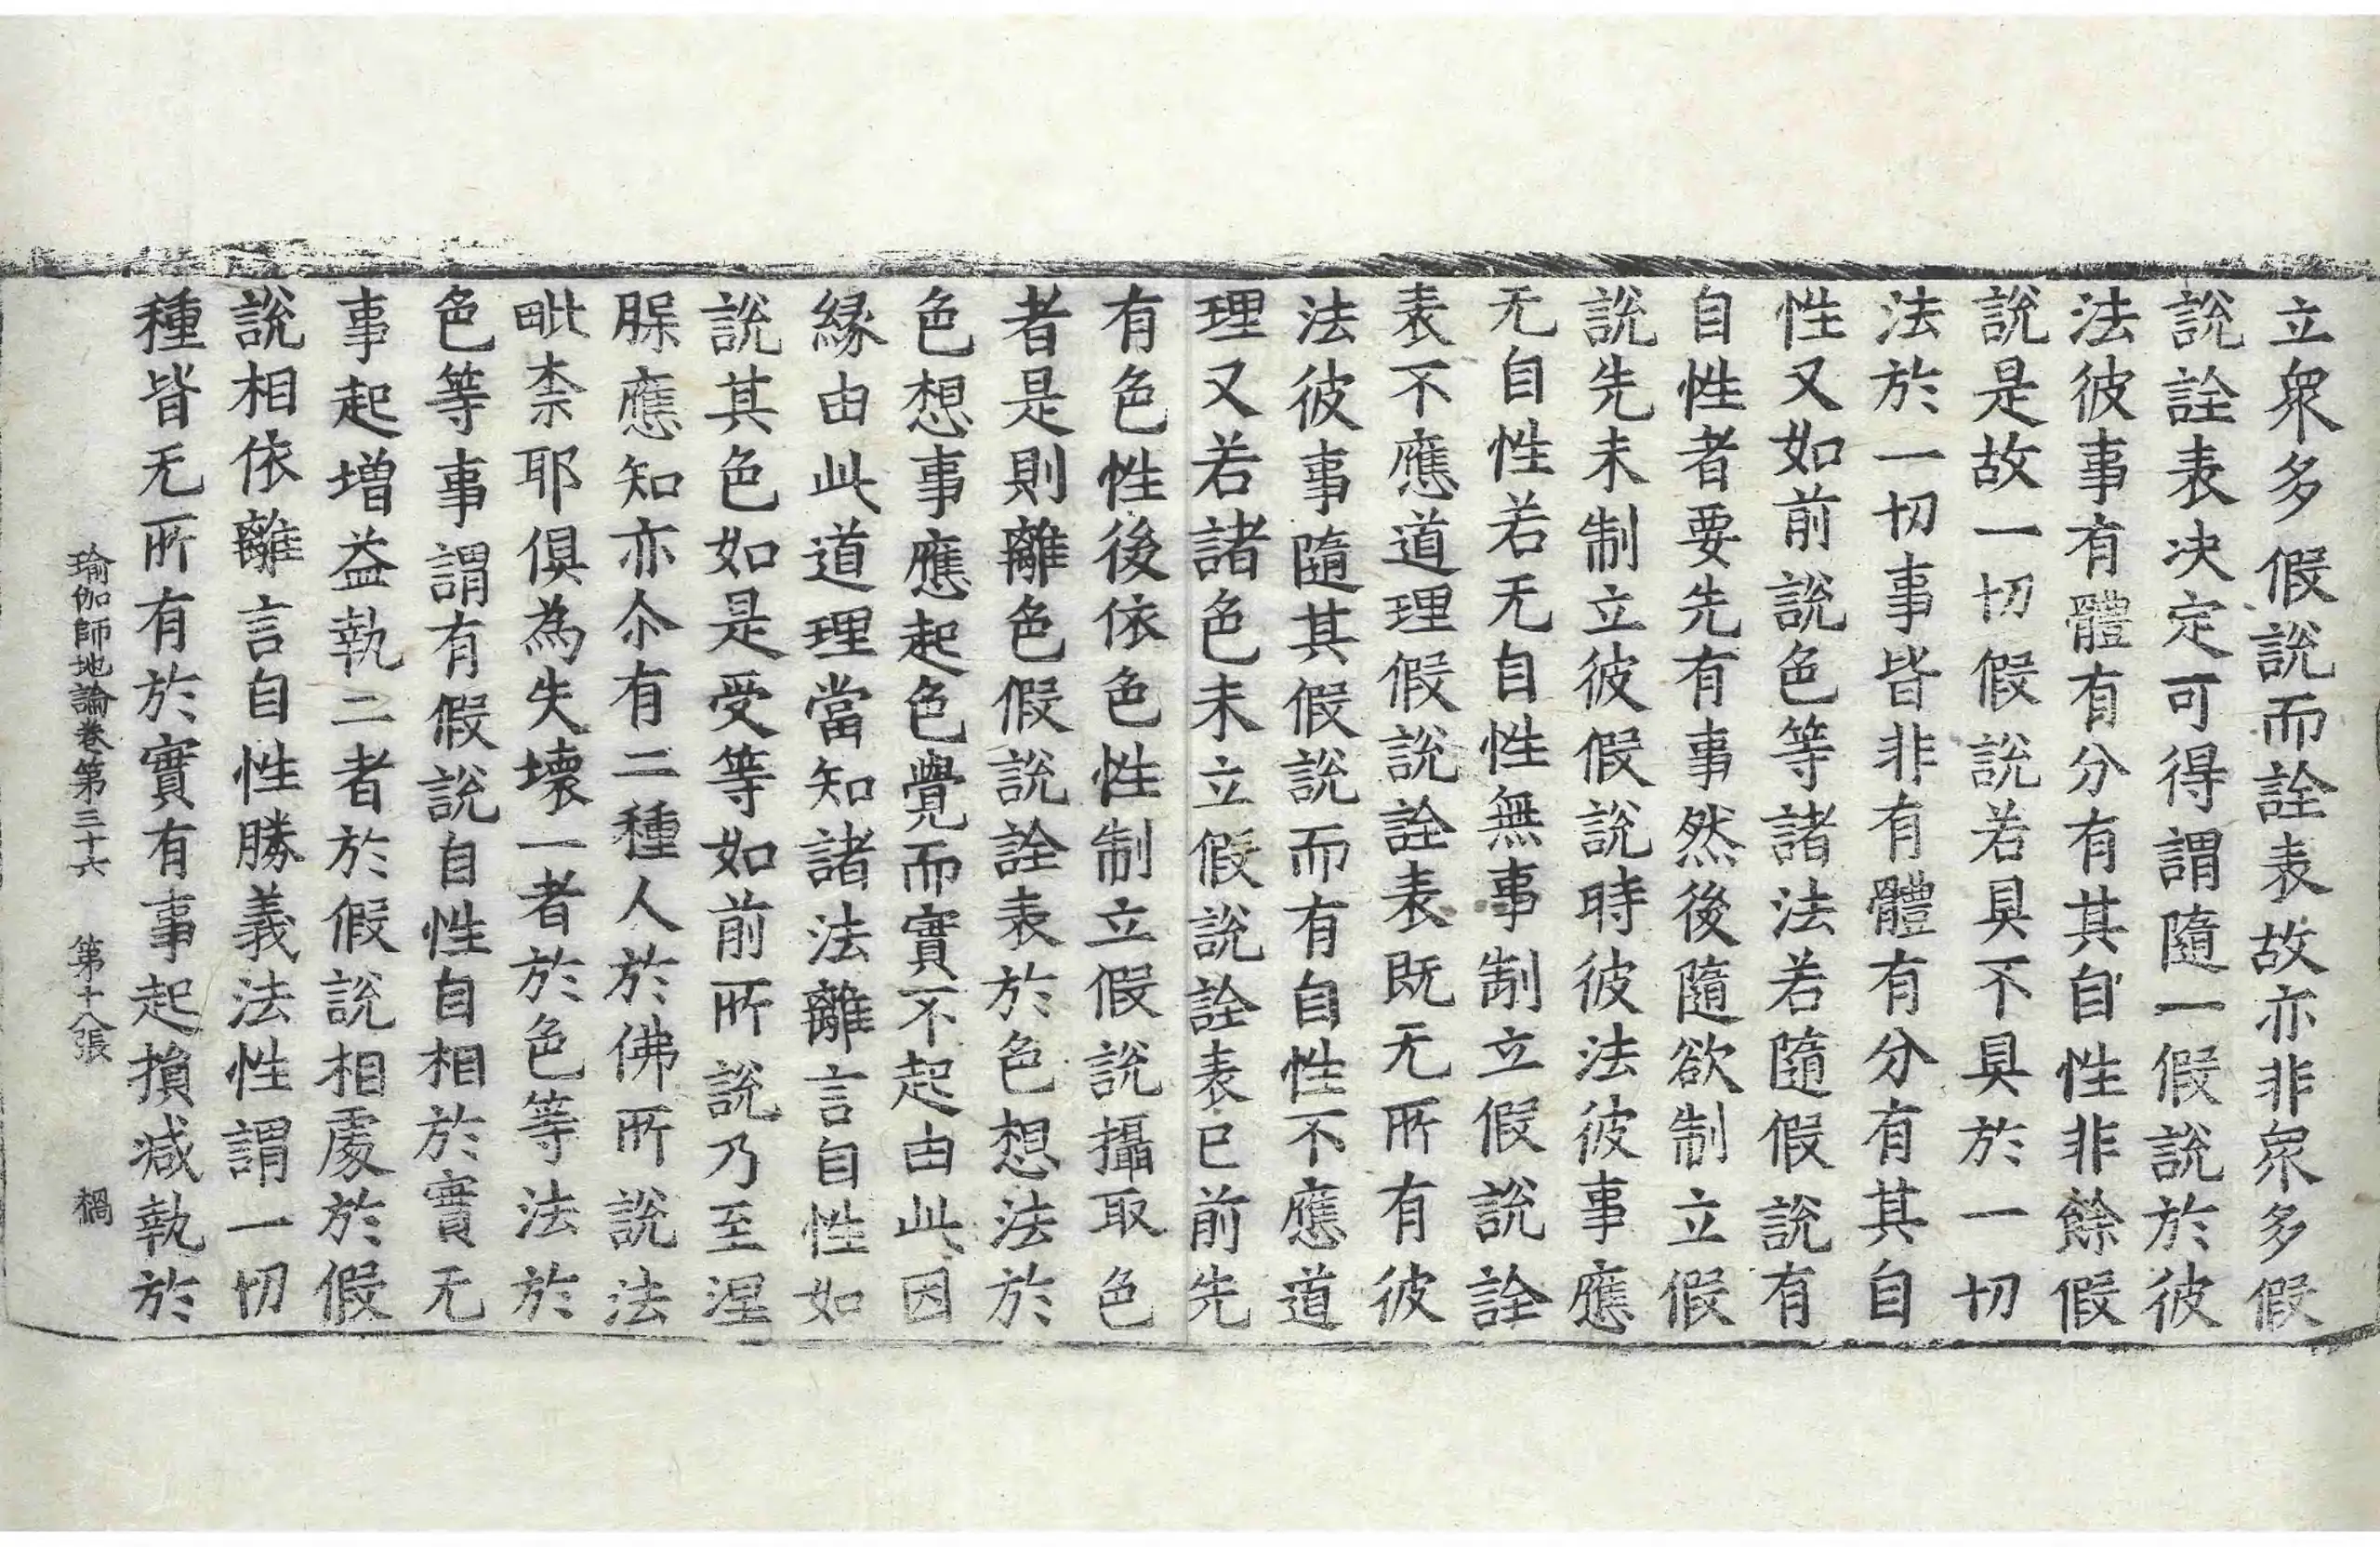 立衆多假說而詮表故亦非衆多假
說詮表决定可得謂隨一假說於彼
法彼事有體有分有其自性非餘假
說是故一切假說若具不具於一切
法於一切事皆非有體有分有其自
性又如前說色等諸法若隨假說有
自性者要先有事然後隨欲制立假
說先未制立彼假說時彼法彼事應
无自性若无自性無事制立假說詮
表不應道理假說詮表既无所有彼
法彼事隨其假說而有自性不應道
理又若諸色未立假說詮表已前先
有色性後依色性制立假說攝取色
者是則離色假說詮表於色想法於
色想事應起色覺而實不起由此因
緣由此道理當知諸法離言自性如
說其色如是受等如前所說乃至涅
槃應知亦尒有二種人於佛所說法
毗柰耶俱為失壞一者於色等法於
色等事謂有假說自性自相於實无
事起增益執二者於假說相處於假
說相依離言自性勝義法性謂一切
種皆无所有於實有事起損减執於
瑜伽師地論卷第三十六 第十八張